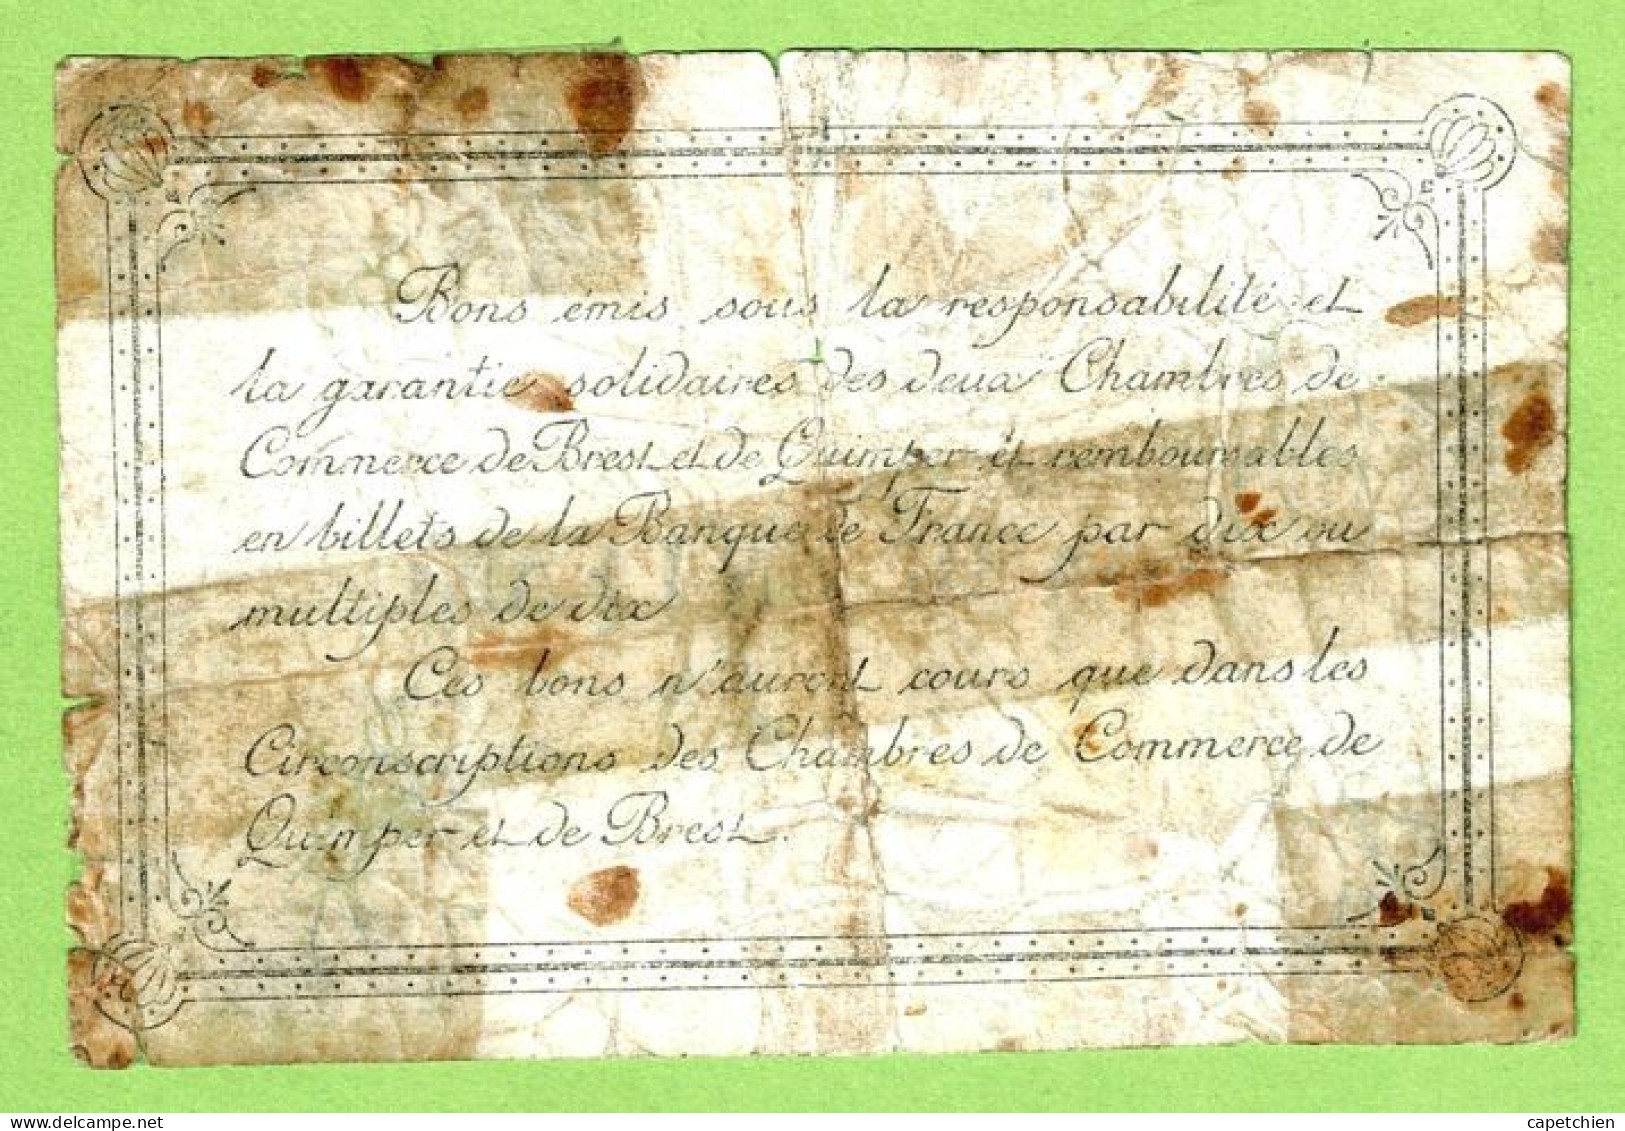 Bons émis sous la responsabilité et
la garantie solidaires des deux Chambres de
Commerce de Brest et de Quimper et remboursables
en billets de la Banque de France par dix ou
multiples de dix
Ces bons n'auront cours que dans les
Circonscriptions des Chambres de Commerce de
Quimper et de Brest.
capetchien